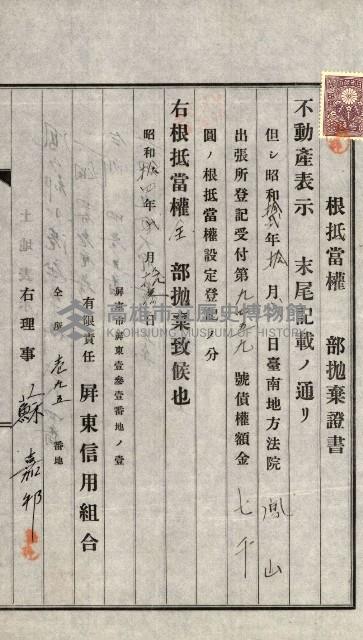 根抵當權 部拋棄證書
不動產表示 末尾記載ノ通リ
但シ昭和拾貳年拾月 日臺南地方法院鳳山
出張所登記受付第 號債權額金七千
圓ノ根抵當權設定登記ノ分
右根抵當權全部拋棄致候也
昭和拾四年貳月 日
屏東市屏東壹參壹番地ノ壹
有限責任 屏東信用組合
仝所 壱九五番地
右理事 蘇嘉邦
高雄市立歷史博物館
KAOHSIUNG MUSEUM OF HISTORY